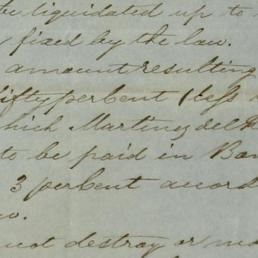 be liquidated up to
fixed by the law.
amount resulting
fifty percent (less
which Martinez del
to be paid in Ban
3 percent accord
not destroy or